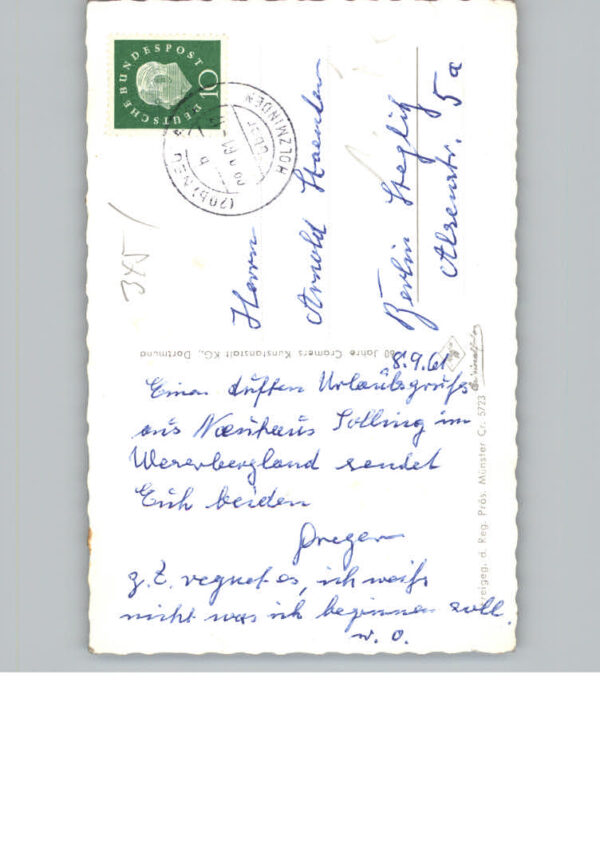 DEUTSCHE BUNDESPOST
10
HOLZMINDEN
3x5
Herrn
Arnold
Berlin Steglitz
Alsenstr. 5a
80 Jahre Cramers Kunstanstalt KG., Dortmund
8.9.61
Einen duften Urlaubsgruß
aus Neuhaus Solling im
Weserbergland sendet
Euch beiden
z. Z. regnet es, ich weiß
nicht was ich beginnen soll.
w. o.
freigeg. d. Reg. Präs. Münster Cr. 5723